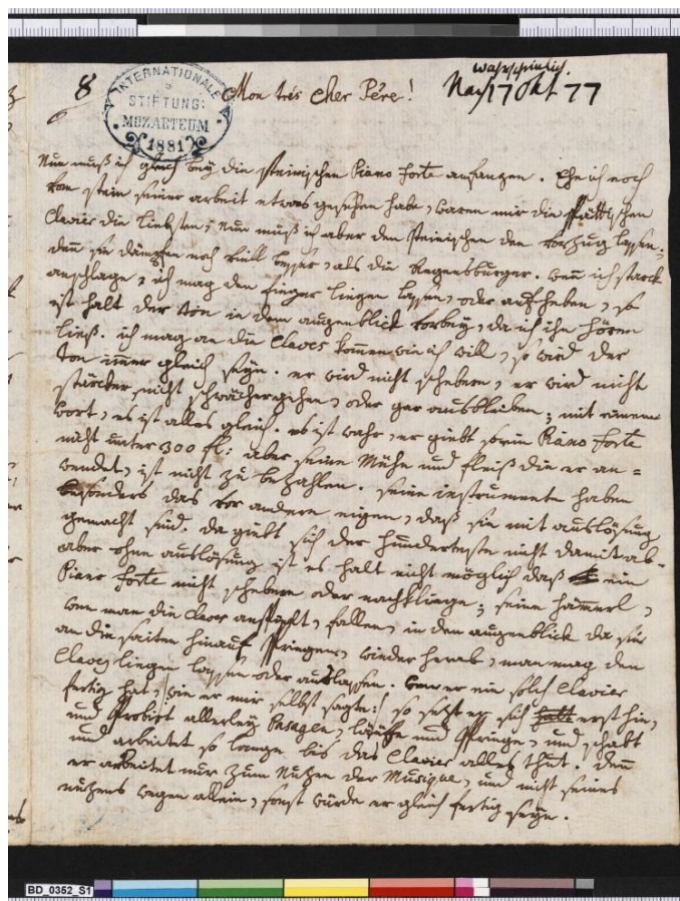 8
INTERNATIONALE
STIFTUNG:
MOZARTEUM
1881
Mon trés cher Pére!
wahrscheinlich.
Nach 17 Okt 77
Nun muß ich gleich bey die steinischen Piano forte anfangen. Ehe ich noch
vom stein seiner arbeit etwas gesehen habe, waren mir die spättischen
Clavier die liebsten; Nun muß ich aber den steinischen den vorzug lassen;
denn sie dämpfen noch viell besser, als die Regensburger. wenn ich starck
anschlage, ich mag den finger liegen lassen, oder aufheben, so
ist halt der ton in dem augenblick vorbey, da ich ihn hören
ließ. ich mag an die Claves kommen wie ich will, so wird der
ton immer gleich seyn. er wird nicht schebern, er wird nicht
stärcker, nicht schwächer gehen, oder gar ausbleiben; mit einem
wort, es ist alles gleich. es ist wahr, er giebt so ein Piano forte
nicht unter 300 fl: aber seine Mühe und fleiß die er an=
wendet, ist nicht zu bezahlen. seine instrumente haben
besonders das vor andern eigen, daß sie mit auslösung
gemacht sind. da giebt sich der hunderteste nicht damit ab.
aber ohne auslösung ist es halt nicht möglich daß ein
Piano forte nicht schebere oder nachklinge; seine hämmerl,
wen man die Claves anspielt, fallen, in den augenblick da sie
an die saiten hinauf springen, wieder herab, man mag den
Claves liegen lassen oder auslassen. wen er ein solch Clavier
fertig hat, /: wie er mir selbst sagte :/ so sezt er sich erst hin,
und Probirt allerley Pasagen, läuffe und springe, und schabt
und arbeitet so lange bis das Clavier alles thut. denn
er arbeitet nur zum Nuzen der Musique, und nicht seines
nuzens wegen allein, sonst würde er gleich fertig seyn.
BD_0352_S1